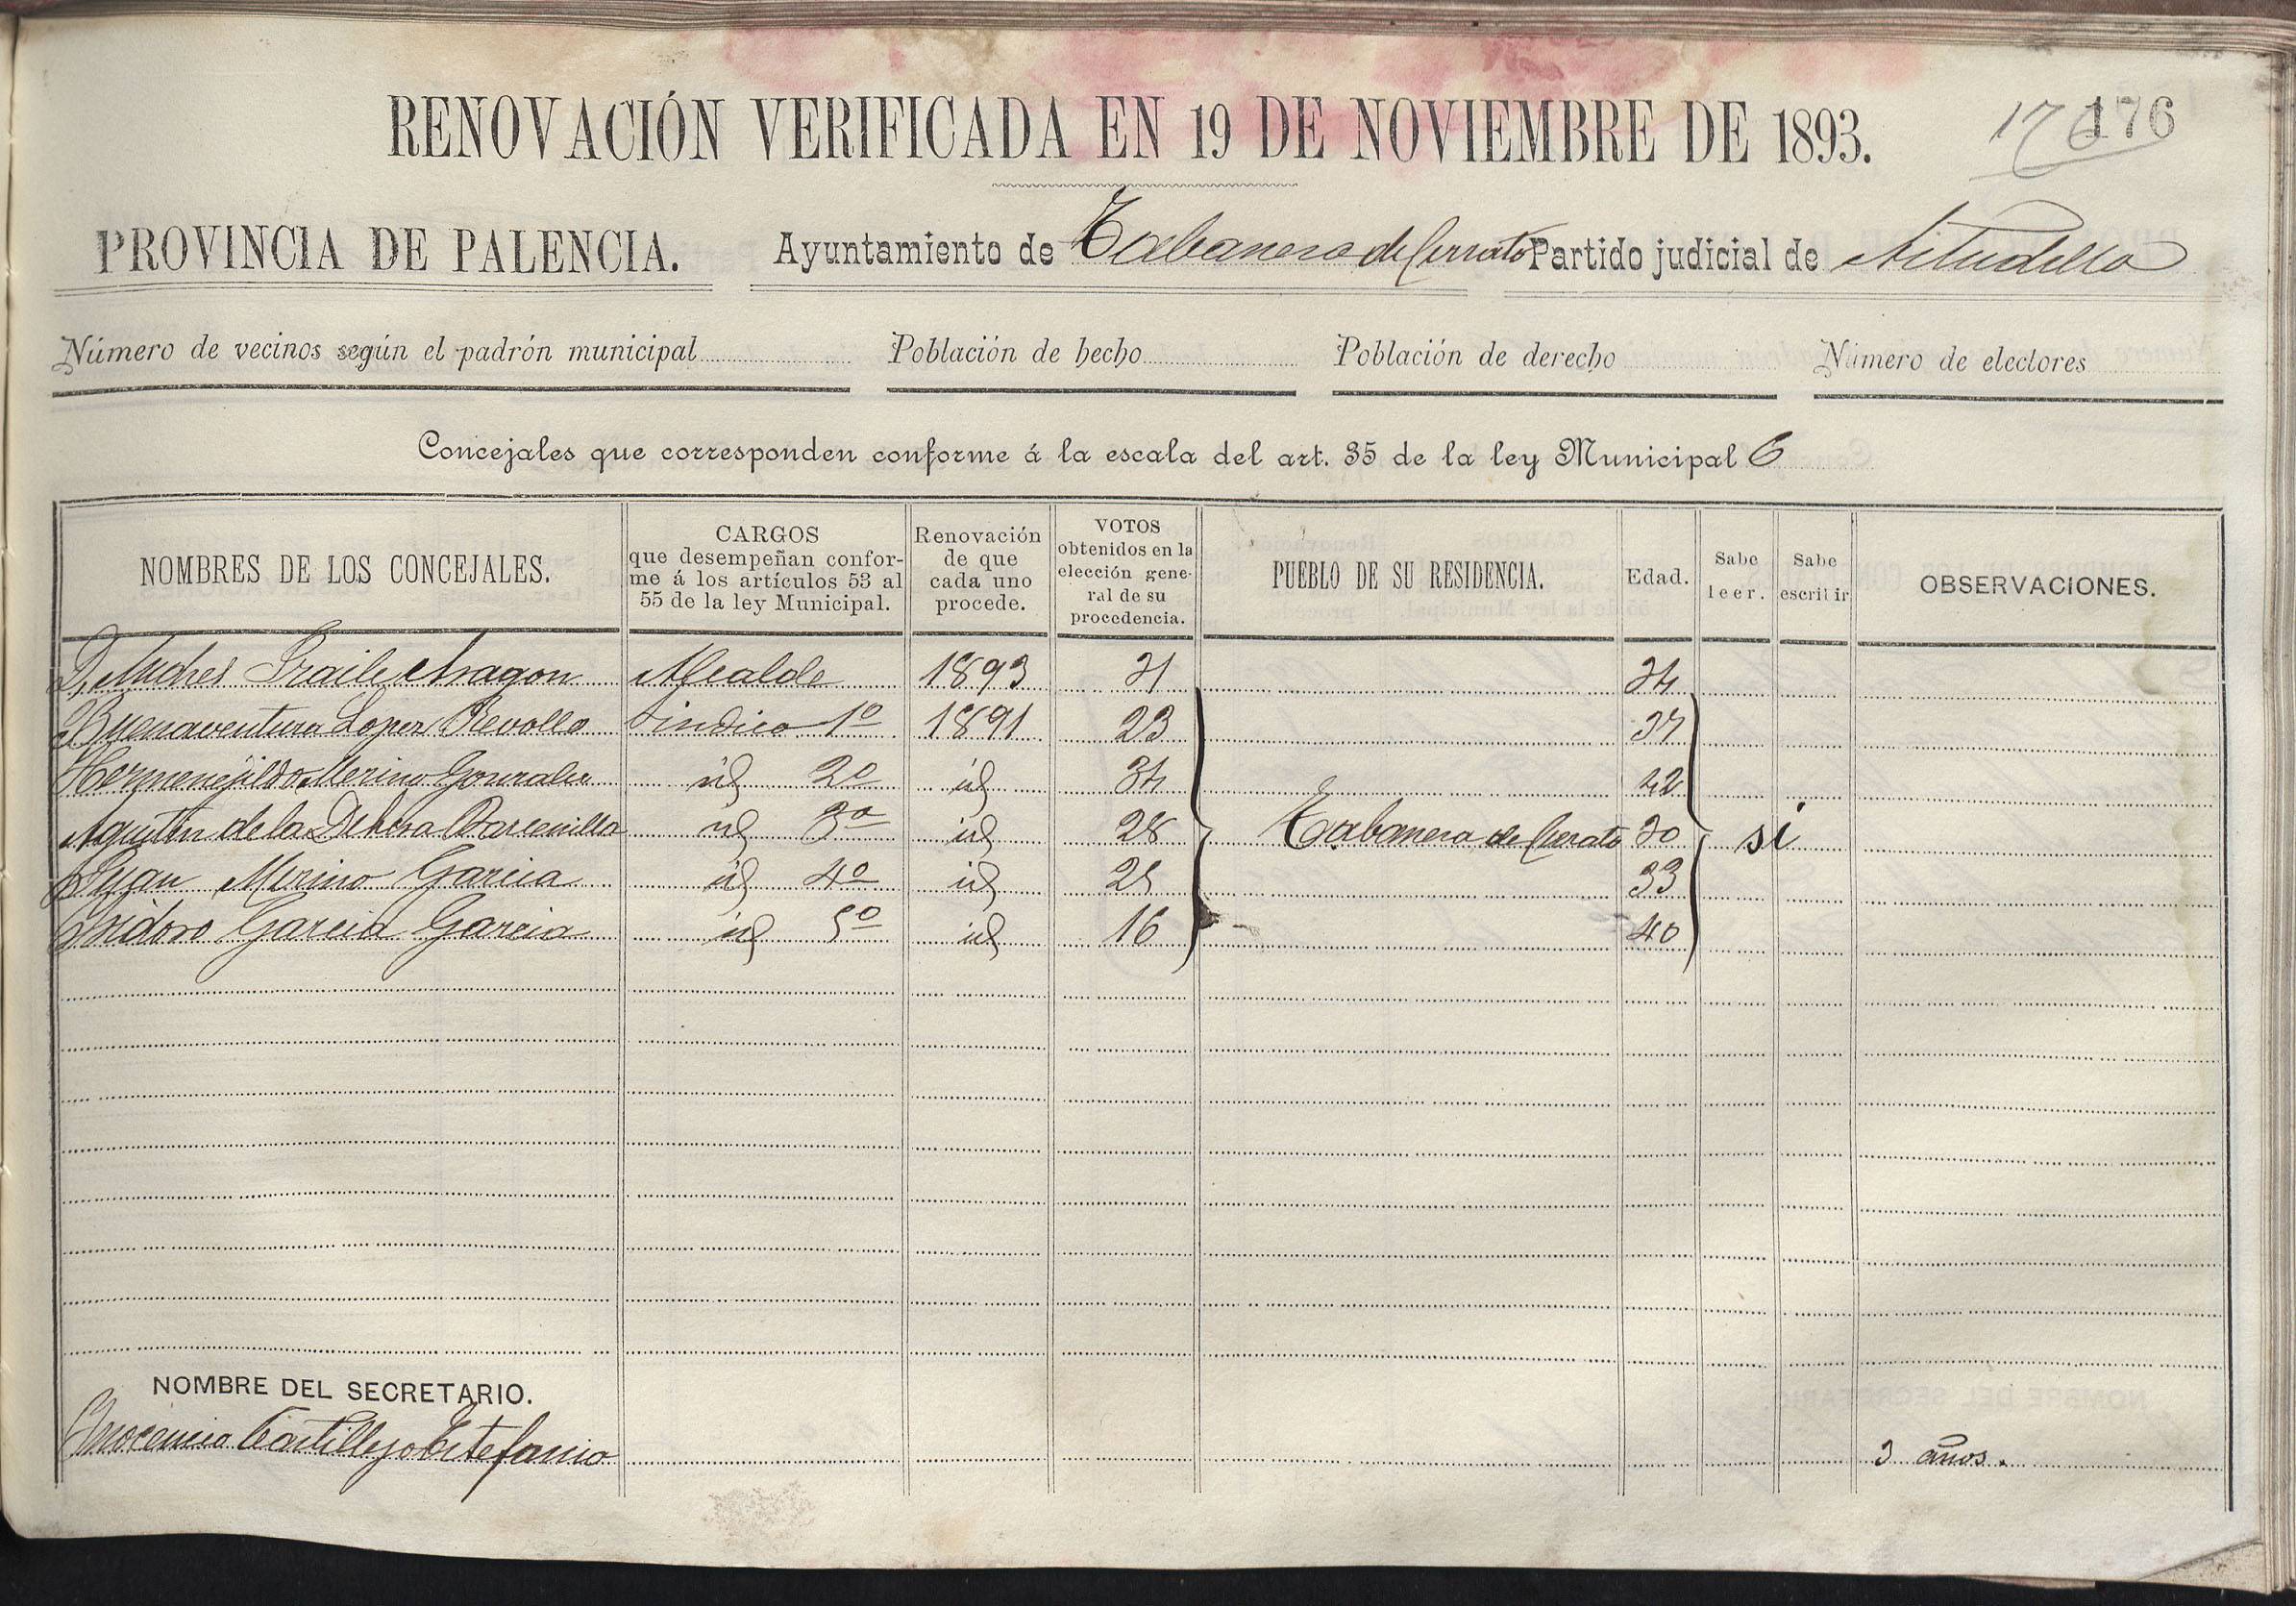 RENOVACIÓN VERIFICADA EN 19 DE NOVIEMBRE DE 1893.
176 176
PROVINCIA DE PALENCIA. Ayuntamiento de Tabanera de Cerrato Partido judicial de Astudillo
Número de vecinos según el padrón municipal Población de hecho Población de derecho Número de electores
Concejales que corresponden conforme á la escala del art. 35 de la ley Municipal 6
NOMBRES DE LOS CONCEJALES.
CARGOS
que desempeñan confor-
me á los artículos 53 al
55 de la ley Municipal.
Renovación
de que
cada uno
procede.
VOTOS
obtenidos en la
elección gene-
ral de su
procedencia.
PUEBLO DE SU RESIDENCIA.
Edad.
Sabe
leer.
Sabe
escribir
OBSERVACIONES.
D. Andres Fraile Aragon Alcalde 1893 21 34
Buenaventura Lopez Revollo Sindico 1º 1891 23 37
Hermenejildo Merino Gonzalez id 2º id 34 42
Agustin de la Dehesa Barcenilla id 3º id 28 Tabanera de Cerrato 30 si
Juan Merino Garcia id 4º id 25 33
Isidoro Garcia Garcia id 5º id 16 40
NOMBRE DEL SECRETARIO.
Inocencio Castillejo Estefania 3 años.